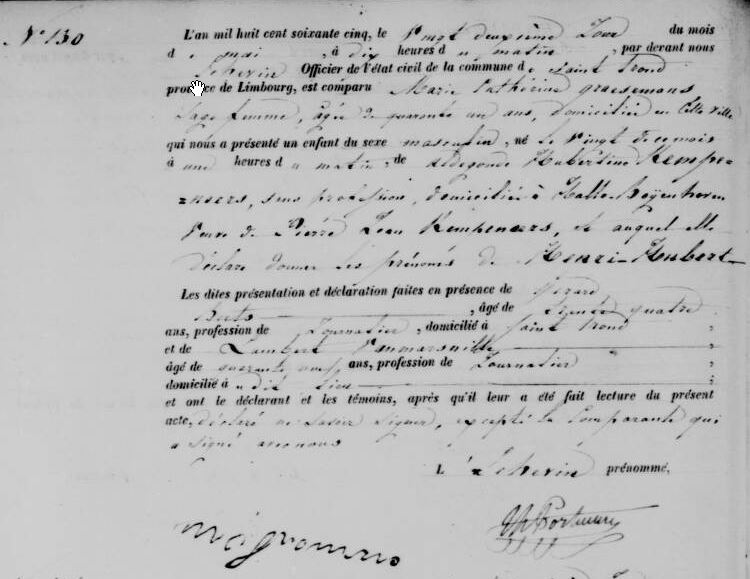 N° 130
L'an mil huit cent soixante cinq, le Vingt deuxième Jour du mois
de mai, à dix heures du matin, par devant nous
Echevin Officier de l'état civil de la commune de Saint Trond
province de Limbourg, est comparu Marie Catherine
Sage femme, âgée de quarante un ans, domiciliée en Cette Ville
qui nous a présenté un enfant du sexe masculin, né le Vingt de ce mois
à une heures du matin, de Aldegonde Hubertine Kempe-
neers, sans profession, domiciliée à Halle-Boyenhoven
Veuve de Pierre Jean Kempeneers, et auquel elle
déclare donner les prénoms de Henri-Hubert
Les dites présentation et déclaration faites en présence de Gerard
, âgé de trente quatre
ans, profession de Journalier, domicilié à Saint Trond
et de Lambert
âgé de ans, profession de Journalier
domicilié à dit lieu
et ont le déclarant et les témoins, après qu'il leur a été fait lecture du présent
acte, déclaré ne savoir signer, excepté la Comparante qui
a signé avec nous
L' Echevin prénommé,